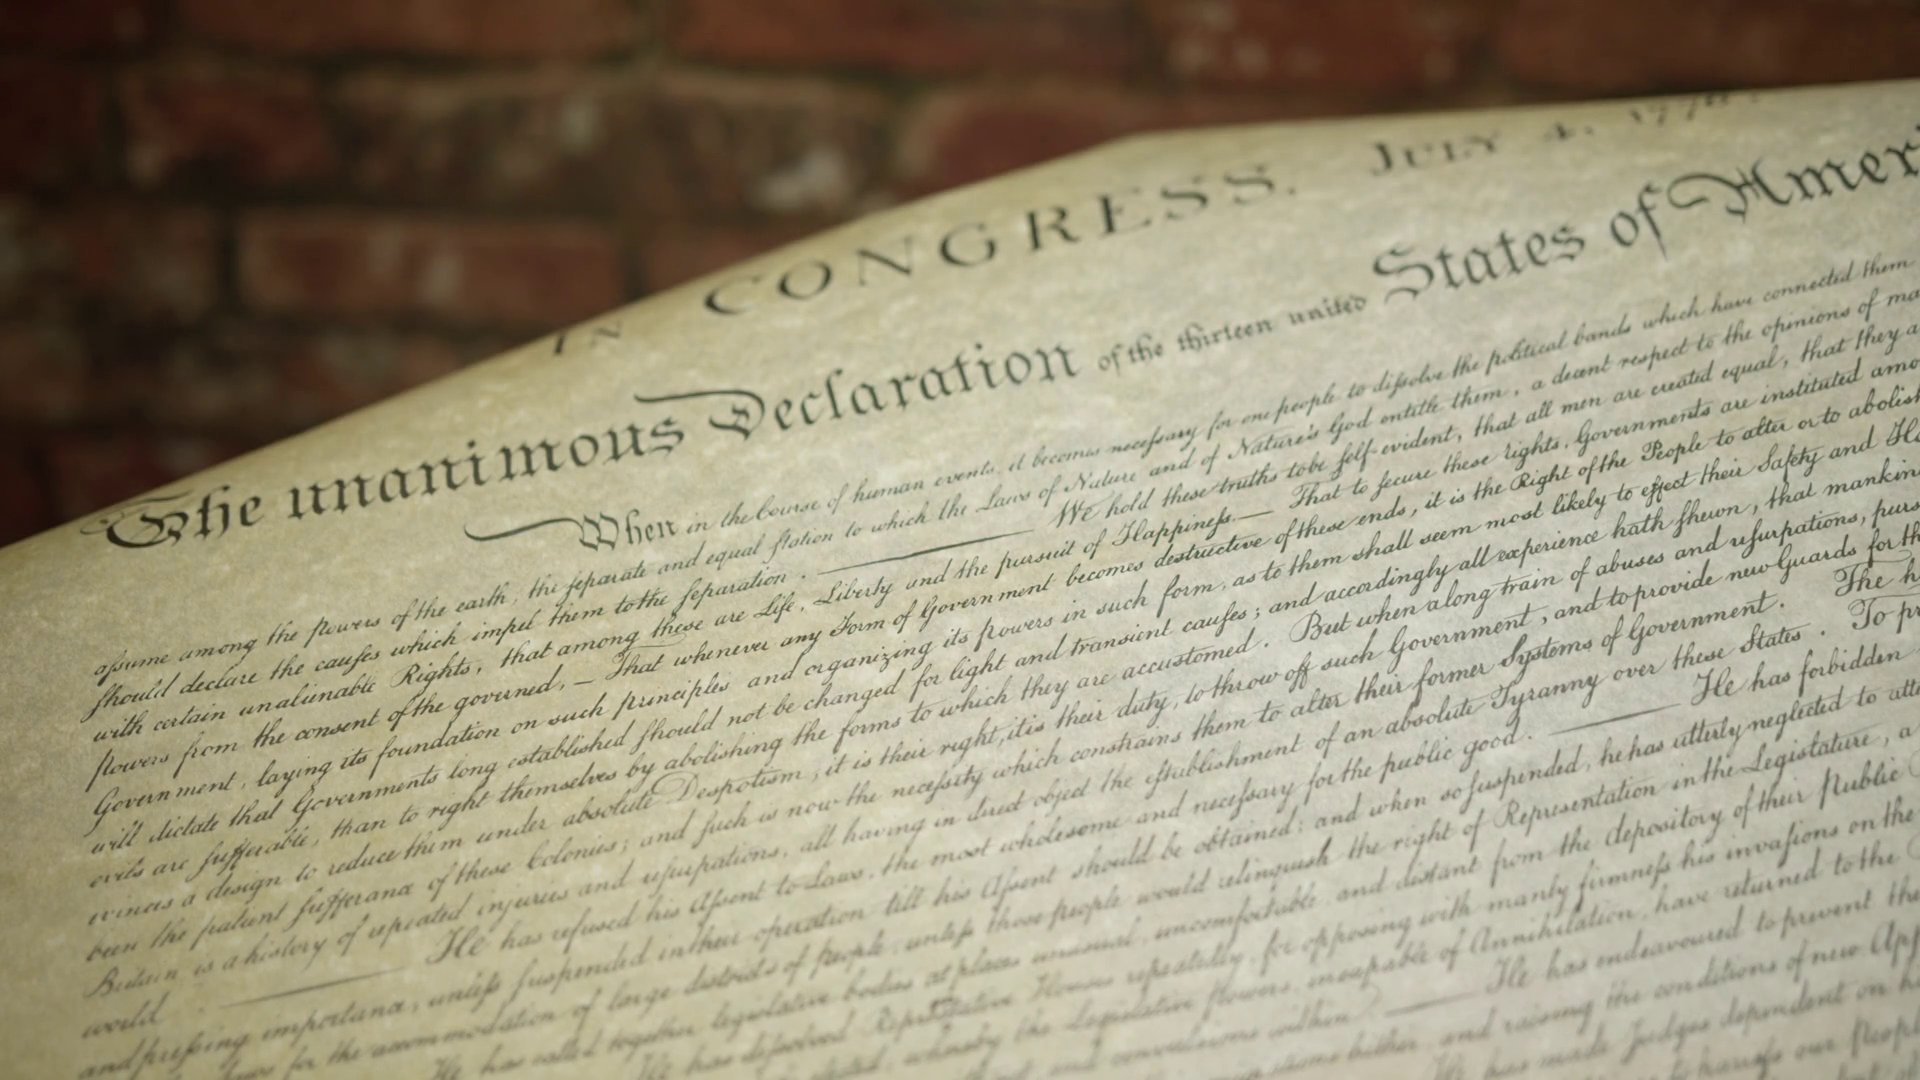 IN CONGRESS. JULY 4, 1776.
The unanimous Declaration of the thirteen united States of Ameri
When in the Course of human events, it becomes necessary for one people to dissolve the political bands which have connected them
assume among the powers of the earth, the separate and equal station to which the Laws of Nature and of Nature's God entitle them, a decent respect to the opinions of ma
should declare the causes which impel them to the separation. We hold these truths to be self-evident, that all men are created equal, that they a
with certain unalienable Rights, that among these are Life, Liberty and the pursuit of Happiness. — That to secure these rights, Governments are instituted amo
powers from the consent of the governed, — That whenever any Form of Government becomes destructive of these ends, it is the Right of the People to alter or to abolish
Government, laying its foundation on such principles and organizing its powers in such form, as to them shall seem most likely to effect their Safety and Ha
will dictate that Governments long established should not be changed for light and transient causes; and accordingly all experience hath shewn, that mankin
evils are sufferable, than to right themselves by abolishing the forms to which they are accustomed. But when a long train of abuses and usurpations, purs
evinces a design to reduce them under absolute Despotism, it is their right, it is their duty, to throw off such Government, and to provide new Guards for th
been the patient sufferance of these Colonies; and such is now the necessity which constrains them to alter their former Systems of Government. The h
Britain is a history of repeated injuries and usurpations, all having in direct object the establishment of an absolute Tyranny over these States. To pr
world. He has refused his Assent to Laws, the most wholesome and necessary for the public good. He has forbidden
and pressing importance, unless suspended in their operation till his Assent should be obtained; and when so suspended, he has utterly neglected to atte
for the accommodation of large districts of people, unless those people would relinquish the right of Representation in the Legislature, a
He has called together legislative bodies at places unusual, uncomfortable, and distant from the depository of their Public
He has dissolved Representative Houses repeatedly, for opposing with manly firmness his invasions on the
whereby the Legislative powers, incapable of Annihilation, have returned to the
and convulsions within. He has endeavoured to prevent the
hither, and raising the conditions of new App
He has made Judges dependent on hi
to harass our People